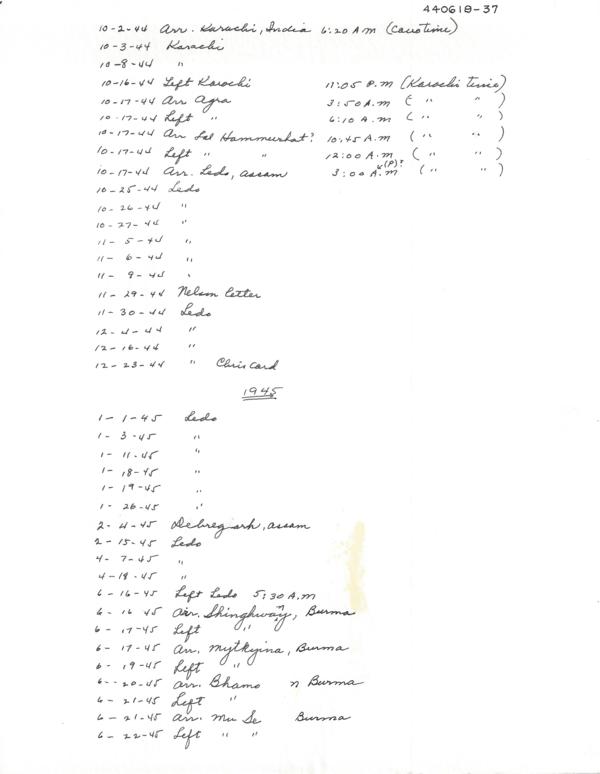 440618-37
10-2-44 Arr. Karachi, India 6:20 A.M (Cairo time)
10-3-44 Karachi
10-8-44 "
10-16-44 Left Karachi 11:05 P.M (Karachi Time)
10-17-44 Arr Agra 3:50 A.M ( " " )
10-17-44 Left " 6:10 A.M ( " " )
10-17-44 Arr Lal Hammurhat? 10:45 A.M ( " " )
10-17-44 Left " " 12:00 A.M ( " " )
10-17-44 Arr. Ledo, Assam 3:00 A.M (P)? ( " " )
10-25-44 Ledo
10-26-44 "
10-27-44 "
11-5-44 "
11-6-44 "
11-9-44 "
11-29-44 Nelson letter
11-30-44 Ledo
12-4-44 "
12-16-44 "
12-23-44 " Chris Card
1945
1-1-45 Ledo
1-3-45 "
1-11-45 "
1-18-45 "
1-19-45 "
1-26-45 "
2-4-45 Debregarh, Assam
2-15-45 Ledo
4-7-45 "
4-18-45 "
6-16-45 Left Ledo 5:30 A.M
6-16 45 Arr. Shinghway, Burma
6-17-45 Left "
6-17-45 Arr. Mytkyina, Burma
6-19-45 Left "
6--20-45 Arr. Bhamo n Burma
6-21-45 Left "
6-21-45 Arr. Mu Se Burma
6-22-45 Left " "